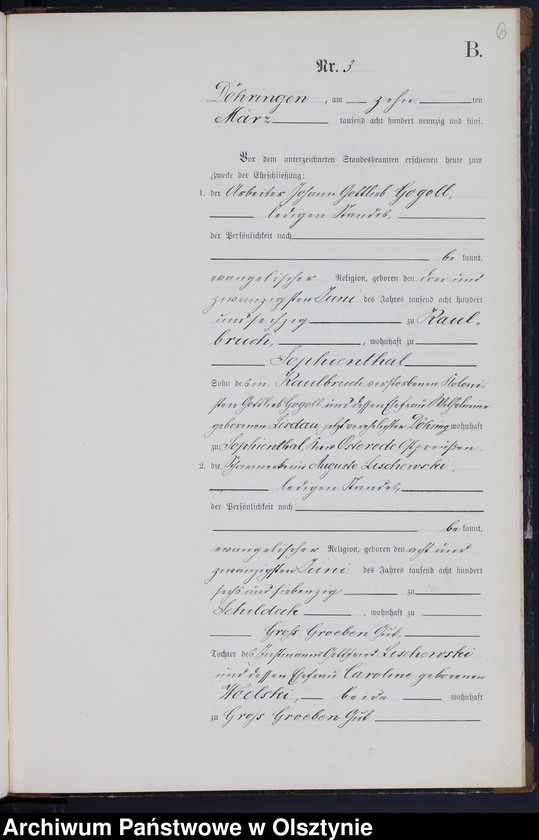 6
B.
Nr. 3
Döhringen, am zehn ten
März tausend acht hundert neunzig und fünf.
Vor dem unterzeichneten Standesbeamten erschienen heute zum
Zwecke der Eheschließung:
1. der Arbeiter Johann Gottlieb Gogoll,
ledigen Standes,
der Persönlichkeit nach
be kannt,
evangelischer Religion, geboren den drei und
zwanzigsten Juni des Jahres tausend acht hundert
und sechzig zu Kaul-
bruch, wohnhaft zu
Sophienthal
Sohn des in Kaulbruch verstorbenen Koloni-
sten Gottlieb Gogoll und dessen Ehefrau Wilhelmine
geborenen Lisdau, jetzt verehelichten Döhring wohnhaft
zu Sophienthal, Kreis Osterode Ostpreußen.
2. die Scharwerkerin Auguste Lischewski,
ledigen Standes,
der Persönlichkeit nach
be kannt,
evangelischer Religion, geboren den acht und
zwanzigsten Juni des Jahres tausend acht hundert
sechs und siebenzig zu
Schildeck, wohnhaft zu
Groß Groeben Gut,
Tochter des Instmanns Gottfried Lischewski
und dessen Ehefrau Caroline geborenen
Woelski, beide wohnhaft
zu Groß Groeben Gut
Archiwum Państwowe w Olsztynie